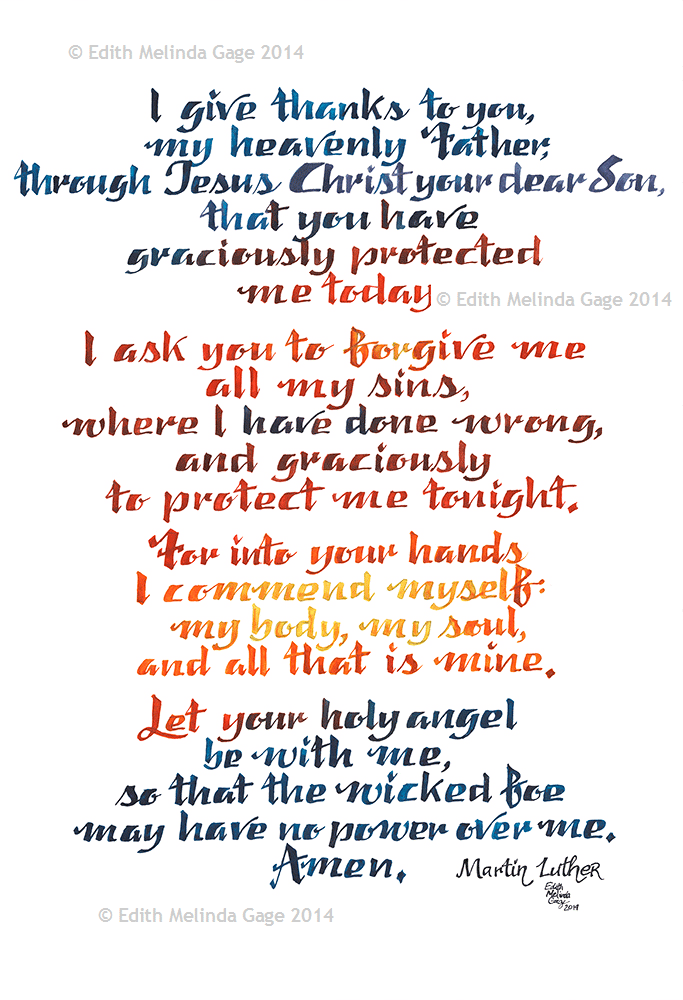 © Edith Melinda Gage 2014
I give thanks to you,
my heavenly Father,
through Jesus Christ your dear Son,
that you have
graciously protected
me today
© Edith Melinda Gage 2014
I ask you to forgive me
all my sins,
where I have done wrong,
and graciously
to protect me tonight.
For into your hands
I commend myself:
my body, my soul,
and all that is mine.
Let your holy angel
be with me,
so that the wicked foe
may have no power over me.
Amen.
Martin Luther
Edith
Melinda
Gage
2014
© Edith Melinda Gage 2014